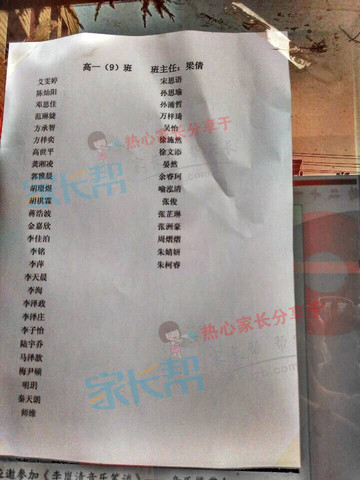 高一（9）班 班主任：梁倩
艾雯婷 宋思语
陈灿阳 孙思瑜
邓思佳 孙涌哲
范琳婕 万梓琦
方承智 吴怡
方梓奕 徐施然
高世平 徐文添
龚湘凌 晏然
郭雅晨 余睿珂
胡璟煜 喻泓清
胡祺霖 张俊
蒋浩波 张芷琳
金嘉欣 张洲豪
李佳泊 周熠熠
李铭 朱婧妍
李萍 朱柯睿
李天晨
李洵
李泽政
李泽庄
李子怡
陆宇乔
马泽歆
梅尹硕
明玥
秦天朗
师维
热心家长分享于
家长帮
热心家长分享于
家长帮
应邀参加《李岚清音乐笔谈》